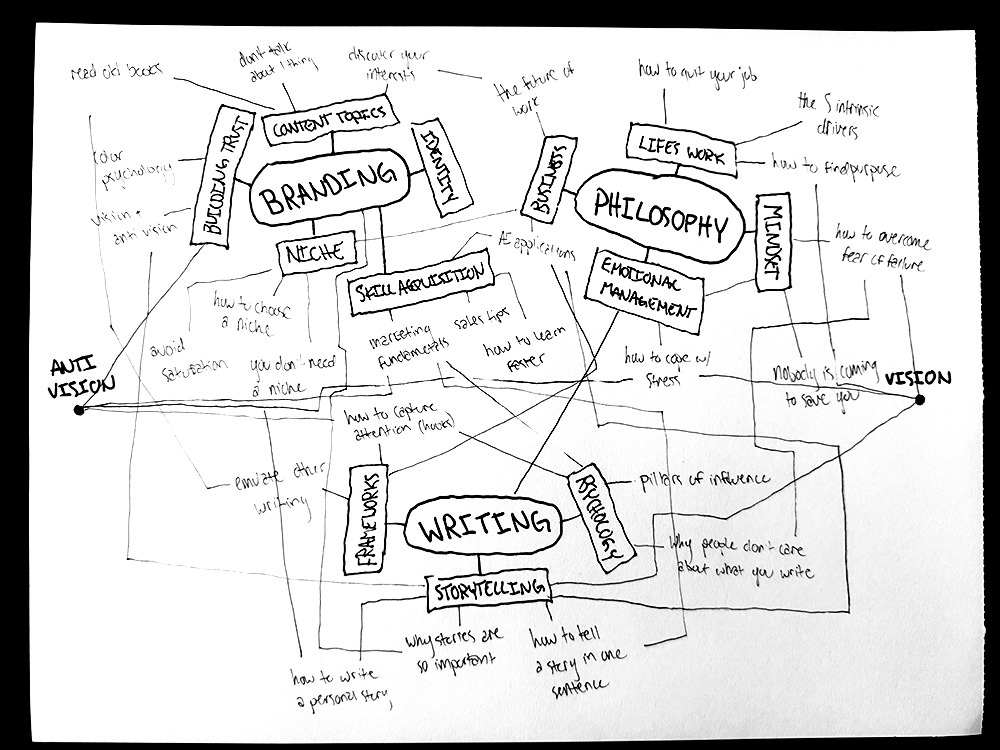 read old books
don't talk
about 1 thing
discover your
interests
the future of
work
how to quit your job
the 5 intrinsic
drivers
CONTENT TOPICS
BUILDING TRUST
IDENTITY
BRANDING
colour
psychology
vision +
anti vision
NICHE
SKILL ACQUISITION
BUSINESS
LIFES WORK
how to find purpose
PHILOSOPHY
MINDSET
how to overcome
fear of failure
AI applications
EMOTIONAL
MANAGEMENT
how to choose
a niche
avoid
saturation
you don't need
a niche
marketing
fundametals
sales tips
how to learn
faster
how to cope w/
stress
nobody is coming
to save you
ANTI
VISION
VISION
how to capture
attention (hooks)
emulate other
writing
FRAMEWORKS
WRITING
PSYCHOLOGY
pillars of influence
Why people don't care
about what you write
STORYTELLING
how to write
a personal story
why stories are
so important
how to tell
a story in one
sentence